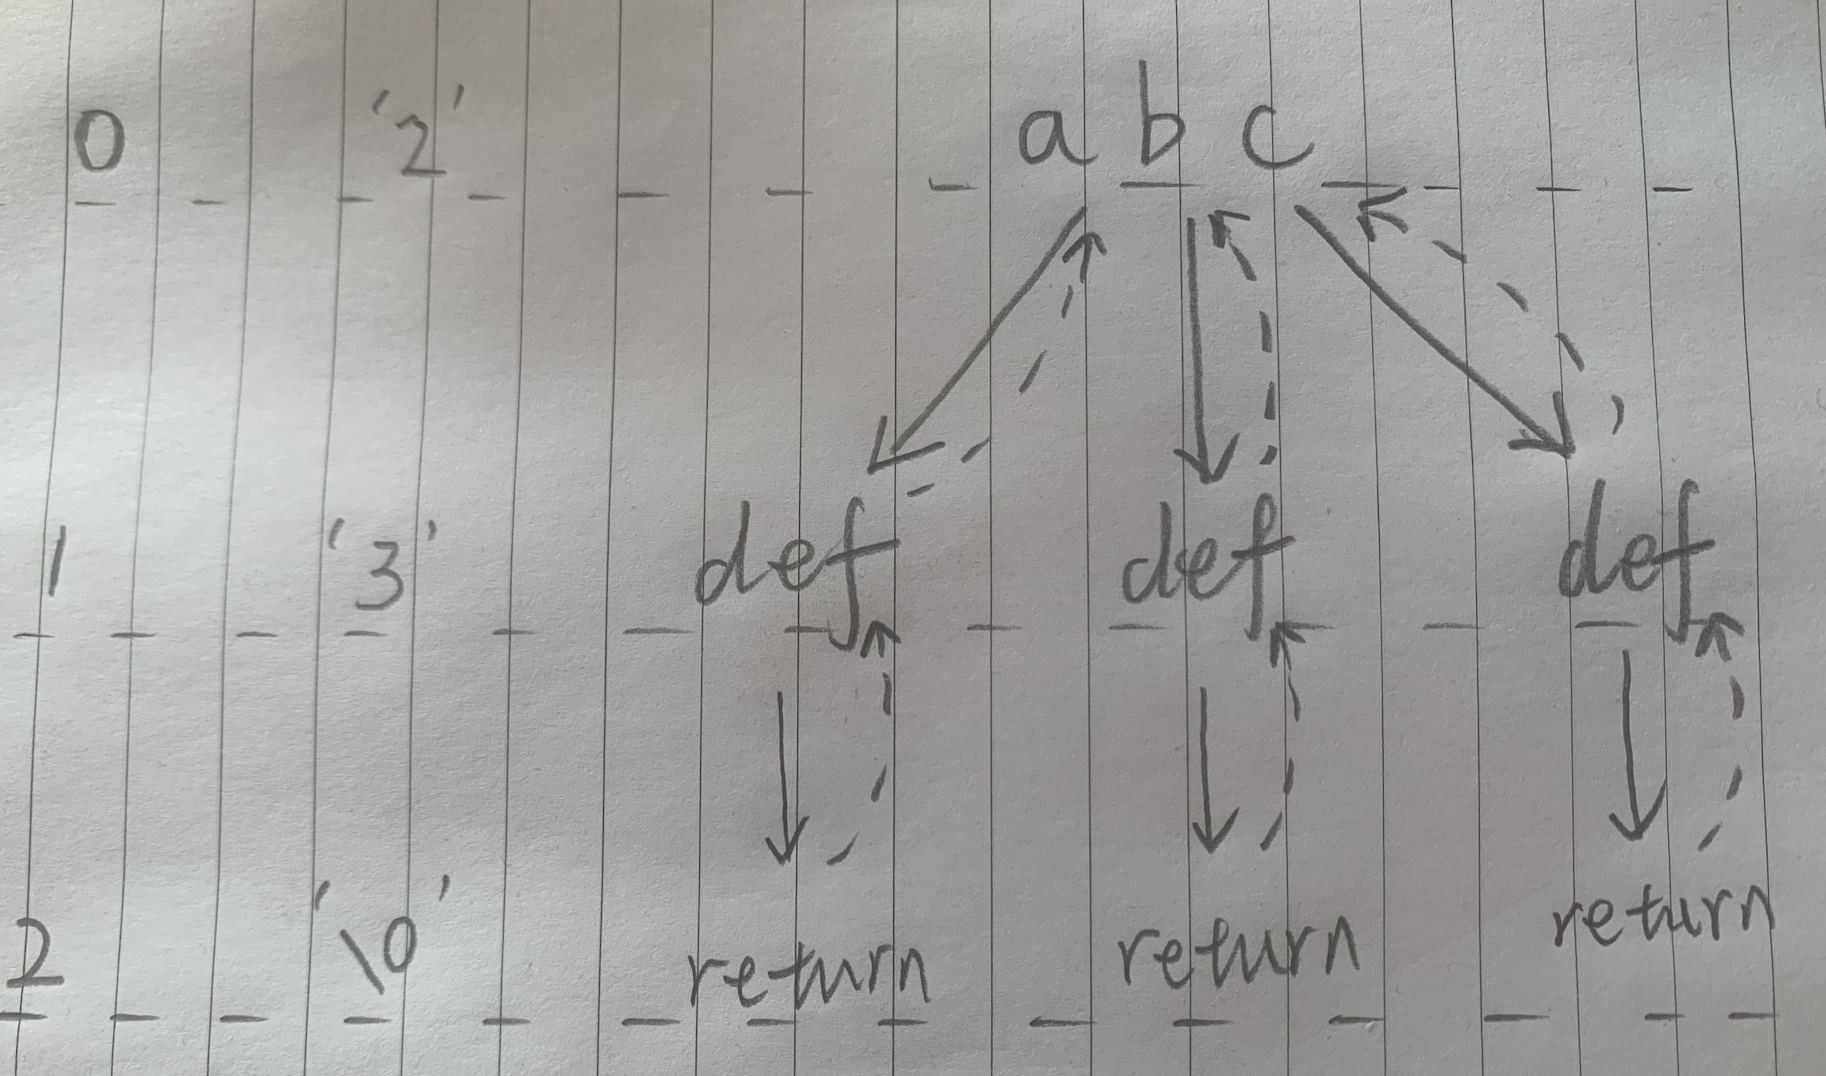 0 '2' a b c
1 '3' def def def
2 '\0' return return return